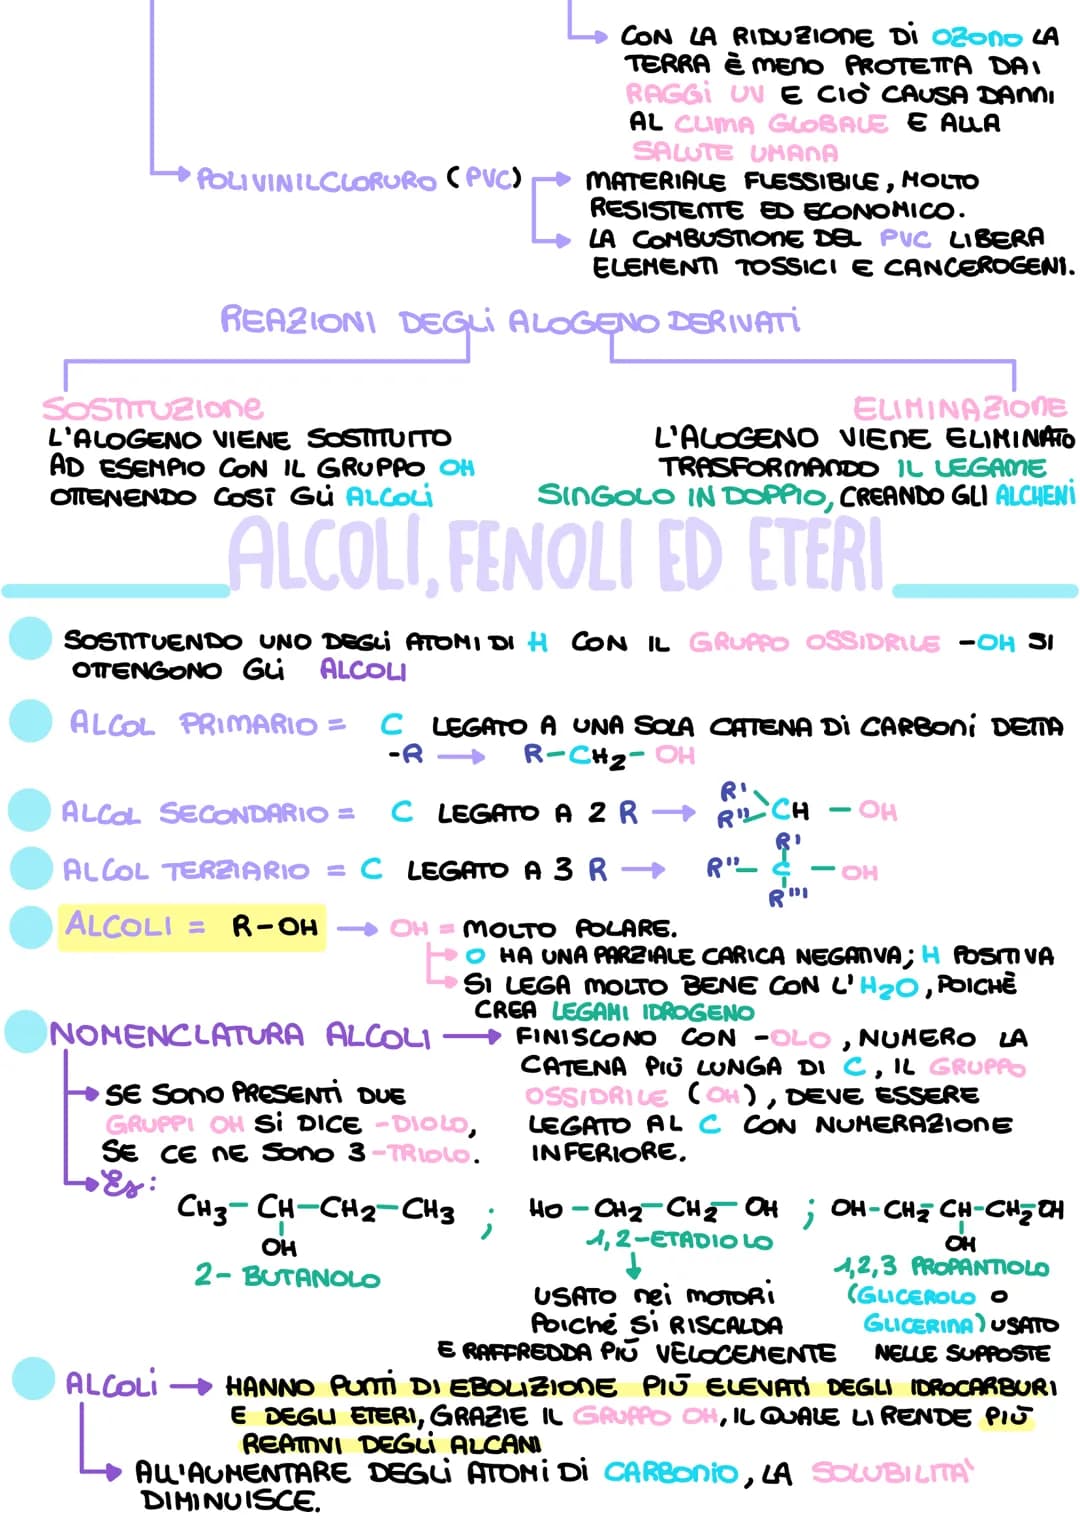 CON LA RIDUZIONE DI OZONO LA
TERRA È MENO PROTETTA DAI
RAGGI UV E CIÒ CAUSA DANNI
AL CLIMA GLOBALE E ALLA
SALUTE UMANA
POLIVINILCLORURO (PVC)
MATERIALE FLESSIBILE, MOLTO
RESISTENTE ED ECONOMICO.
LA COMBUSTIONE DEL PVC LIBERA
ELEMENTI TOSSICI E CANCEROGENI.
REAZIONI DEGLI ALOGENO DERIVATI
SOSTITUZIONE
L'ALOGENO VIENE SOSTITUITO
AD ESEMPIO CON IL GRUPPO OH
OTTENENDO COSÌ GLI ALCOLI
ELIMINAZIONE
L'ALOGENO VIENE ELIMINATO
TRASFORMANDO IL LEGAME
SINGOLO IN DOPPIO, CREANDO GLI ALCHENI
ALCOLI, FENOLI ED ETERI
SOSTITUENDO UNO DEGLI ATOMI DI H CON IL GRUPPO OSSIDRILE -OH SI
OTTENGONO GLI ALCOLI
ALCOL PRIMARIO = C LEGATO A UNA SOLA CATENA DI CARBONI DETTA
-R → R-CH2-OH
ALCOL SECONDARIO = C LEGATO A 2 R → R' R'' CH - OH
ALCOL TERZIARIO = C LEGATO A 3 R → R'' - C - OH
R'
R'''
ALCOLI = R-OH → OH = MOLTO POLARE.
O HA UNA PARZIALE CARICA NEGATIVA; H POSITIVA
SI LEGA MOLTO BENE CON L'H2O, POICHÈ
CREA LEGAMI IDROGENO
NOMENCLATURA ALCOLI → FINISCONO CON -OLO, NUMERO LA
CATENA PIÙ LUNGA DI C, IL GRUPPO
OSSIDRILE (OH), DEVE ESSERE
LEGATO AL C CON NUMERAZIONE
INFERIORE.
SE SONO PRESENTI DUE
GRUPPI OH SI DICE -DIOLO,
SE CE NE SONO 3 -TRIOLO.
Es:
CH3-CH-CH2-CH3 ; HO-CH2-CH2-OH ; OH-CH2-CH-CH2-OH
OH
2-BUTANOLO
1,2-ETADIOLO
OH
1,2,3 PROPANTIOLO
(GLICEROLO O
GLICERINA) USATO
NELLE SUPPOSTE
USATO nei MOTORI
POICHÉ SI RISCALDA
E RAFFREDDA PIÙ VELOCEMENTE
ALCOLI → HANNO PUNTI DI EBOLIZIONE PIÙ ELEVATI DEGLI IDROCARBURI
E DEGLI ETERI, GRAZIE IL GRUPPO OH, IL QUALE LI RENDE PIÙ
REATTIVI DEGLI ALCANI
ALL'AUMENTARE DEGLI ATOMI DI CARBONIO, LA SOLUBILITA'
DIMINUISCE.